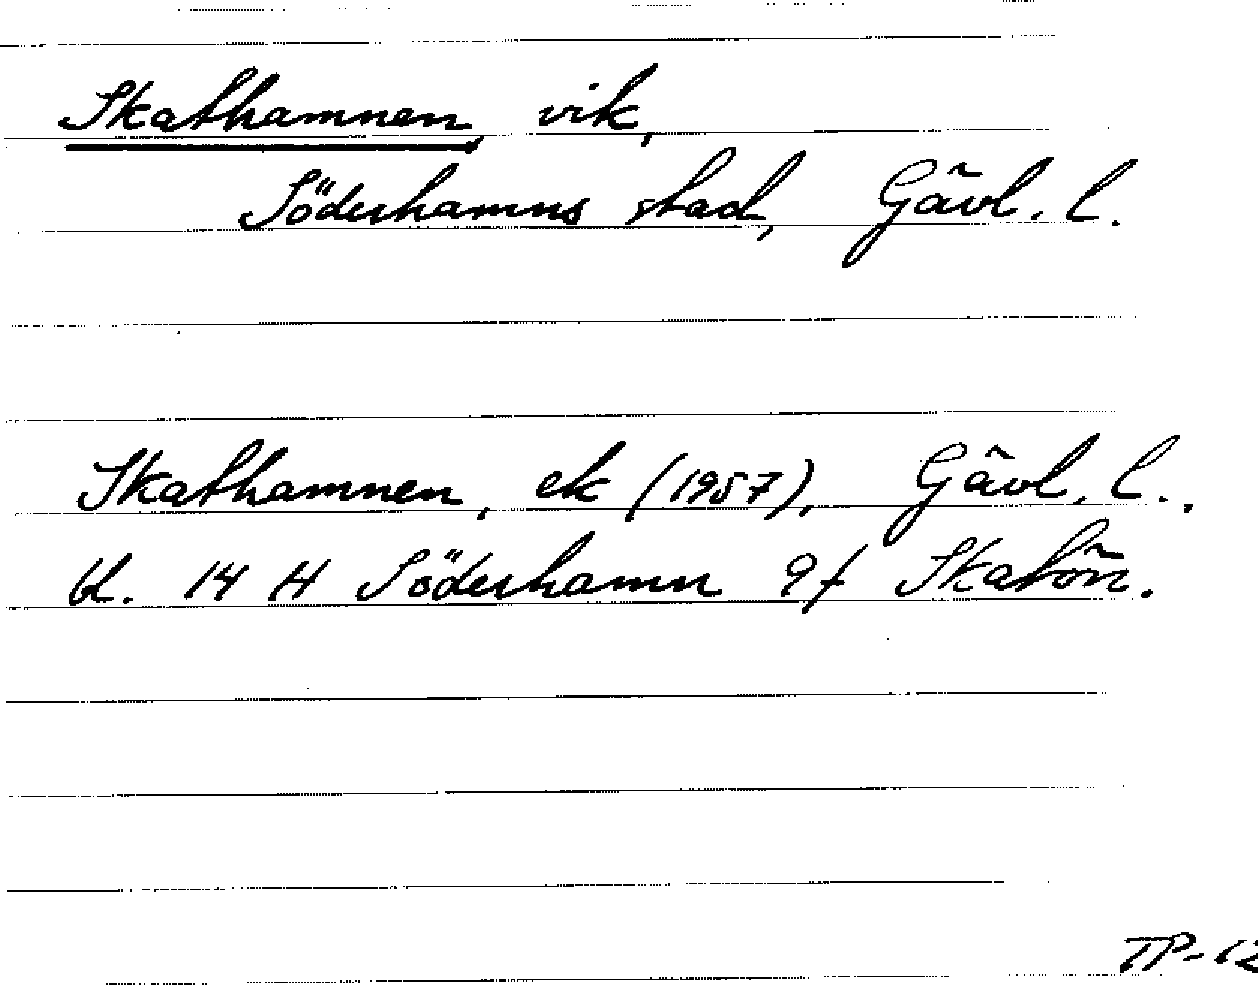 Skathamnen, vik,
Söderhamns stad, Gävl. l.
Skathamnen, ek (1957), Gävl. l.,
bl. 14 H Söderhamn 9f Skatön.
TP-12